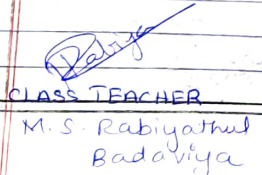 Rabiya
CLASS TEACHER
M. S. Rabiyathul
Badaviya